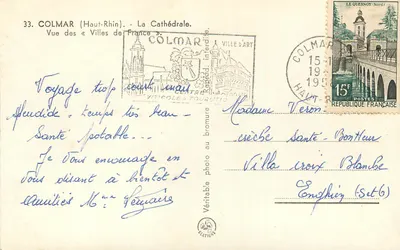 33. COLMAR (Haut-Rhin). - La Cathédrale.
Vue des « Villes de France ».
COLMAR
VILLE D'ART
COLMAR
15-
19
HAU
LE QUESNOY
15F
RÉPUBLIQUE FRANÇAISE
Voyage trop court mais
splendide - temps très beau -
Santé potable...
Je vous encourage en
vous disant à bientôt et
amitiés Mme Lemaire
Véritable photo au bromure
interdite
Madame Veron
crèche Sante-Bonheur
Villa croix Blanche
Enghien (S et O)